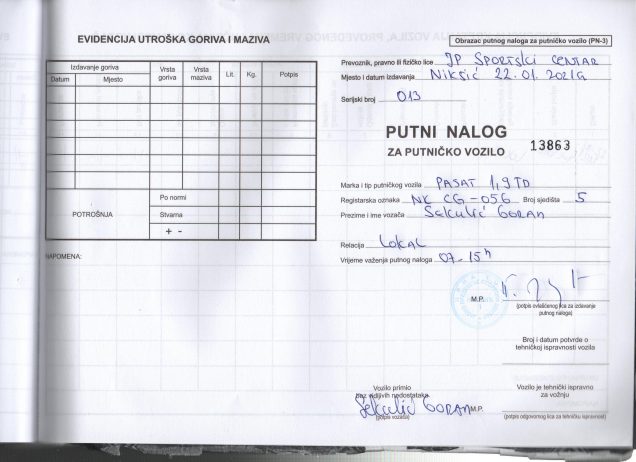 EVIDENCIJA UTROŠKA GORIVA I MAZIVA
Izdavanje goriva
Datum Mjesto
Vrsta goriva
Vrsta maziva
Lit.
Kg.
Potpis
POTROŠNJA
Po normi
Stvarna
+ -
NAPOMENA:
Obrazac putnog naloga za putničko vozilo (PN-3)
Prevoznik, pravno ili fizičko lice JP SPORTSKI CENTAR
Mjesto i datum izdavanja Nikšić 22.01.2021G
Serijski broj 013
PUTNI NALOG
ZA PUTNIČKO VOZILO 13863
Marka i tip putničkog vozila PASAT 1,9 TD
Registarska oznaka NK CG-056 Broj sjedišta 5
Prezime i ime vozača Sekulić GORAN
Relacija LOKAL
Vrijeme važenja putnog naloga 07-15h
M.P.
(potpis ovlašćenog lica za izdavanje
putnog naloga)
Broj i datum potvrde o
tehničkoj ispravnosti vozila
Vozilo primio
bez vidljivih nedostataka
Sekulić GORAN
(potpis vozača)
M.P.
Vozilo je tehnički ispravno
za vožnju
(potpis odgovornog lica za tehničku ispravnost)